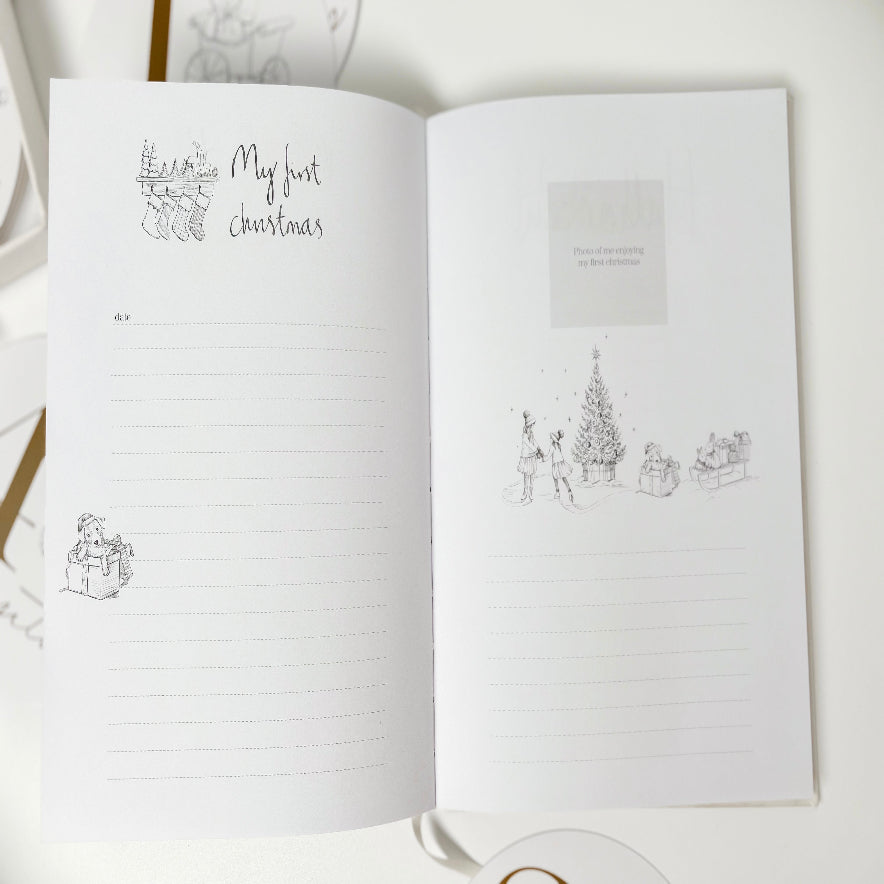 My first
christmas
date
Photo of me enjoying
my first christmas